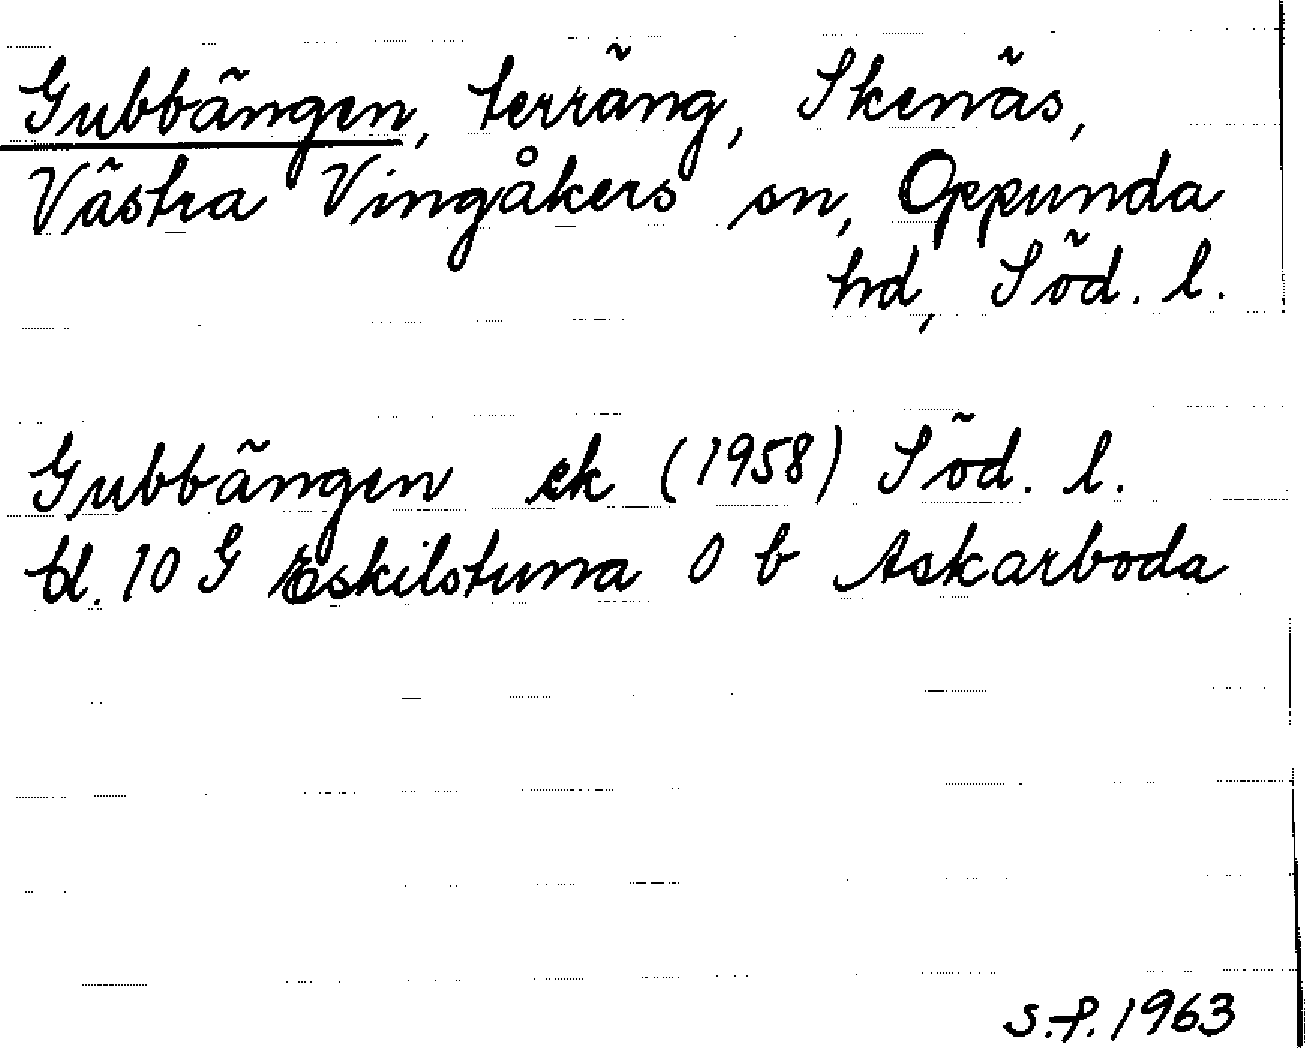 Gubbängen, terräng, Skenäs,
Västra Vingåkers sn, Oppunda
hd, Söd. l.
Gubbängen ek (1958) Söd. l.
bl. 10 G Eskilstuna 0 b Askarboda
S.-P. 1963